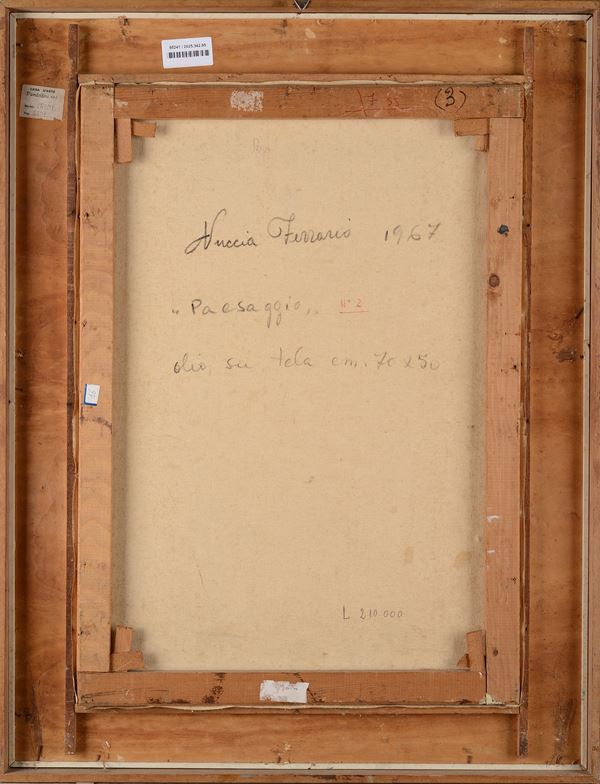 95241 / 2025.362.95
CASA D'ASTE
(3)
Nuccia Ferrario 1967
" Paesaggio " n° 2
olio su tela cm. 70 x 50
L 210 000